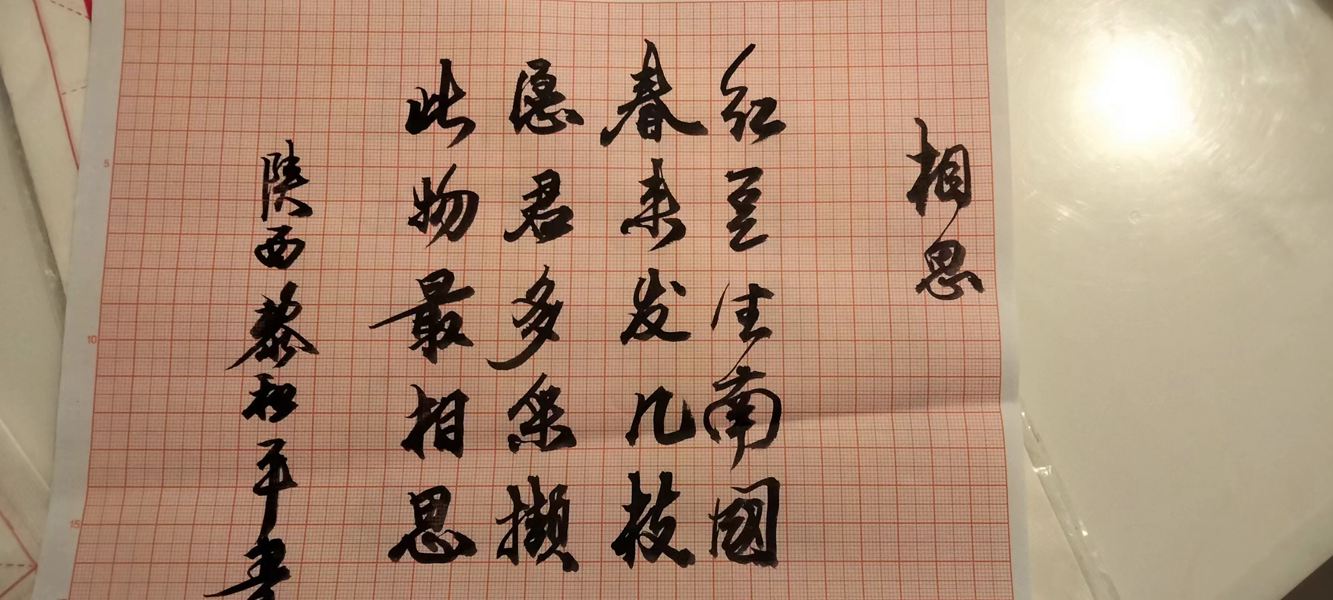 相思
红豆生南國
春来发几枝
愿君多采撷
此物最相思
陕西黎和平書
5
10
15